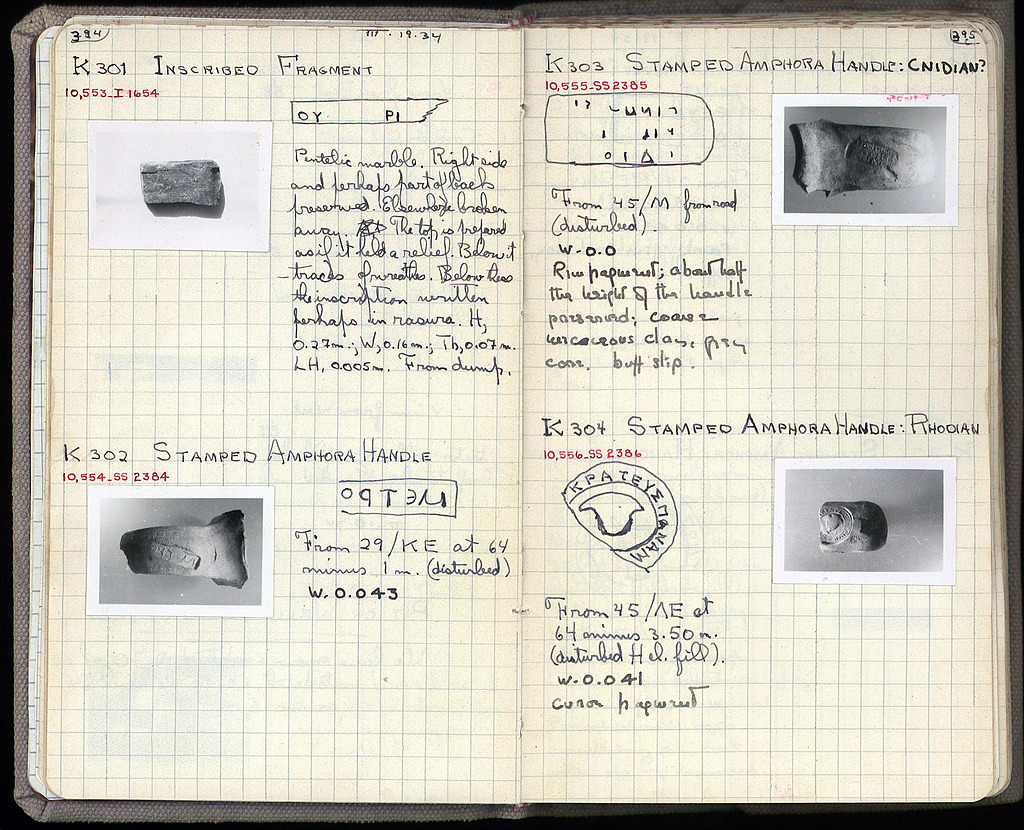 394
III . 19.34
K 301 INSCRIBED FRAGMENT
10,553_I 1654
OY PI
Pentelic marble. Right side
and perhaps part of back
preserved. Elsewhere broken
away. The top is prepared
as if it held a relief. Below it
traces of wreaths. Below these
the inscription written
perhaps in rasura. H,
0.27m.; W, 0.16m.; Th, 0.07m.
LH, 0.005m. From dump.
K 302 STAMPED AMPHORA HANDLE
10,554_SS 2384
From 29/ΚΕ at 64
minus 1 m. (disturbed)
W. 0.043
395
K 303 STAMPED AMPHORA HANDLE: CNIDIAN?
10,555-SS 2385
From 45/Μ from road
(disturbed).
W. 0.0
Rim fragment; about half
the height of the handle
preserved; coarse
micaceous clay, grey
core. buff slip.
K 304 STAMPED AMPHORA HANDLE: RHODIAN
10,556_SS 2386
ΚΡΑΤΕΥΣ ΜΑΝΑΜ
From 45/ΛΕ at
64 minus 3.50 m.
(disturbed Hel. fill).
W. 0.041